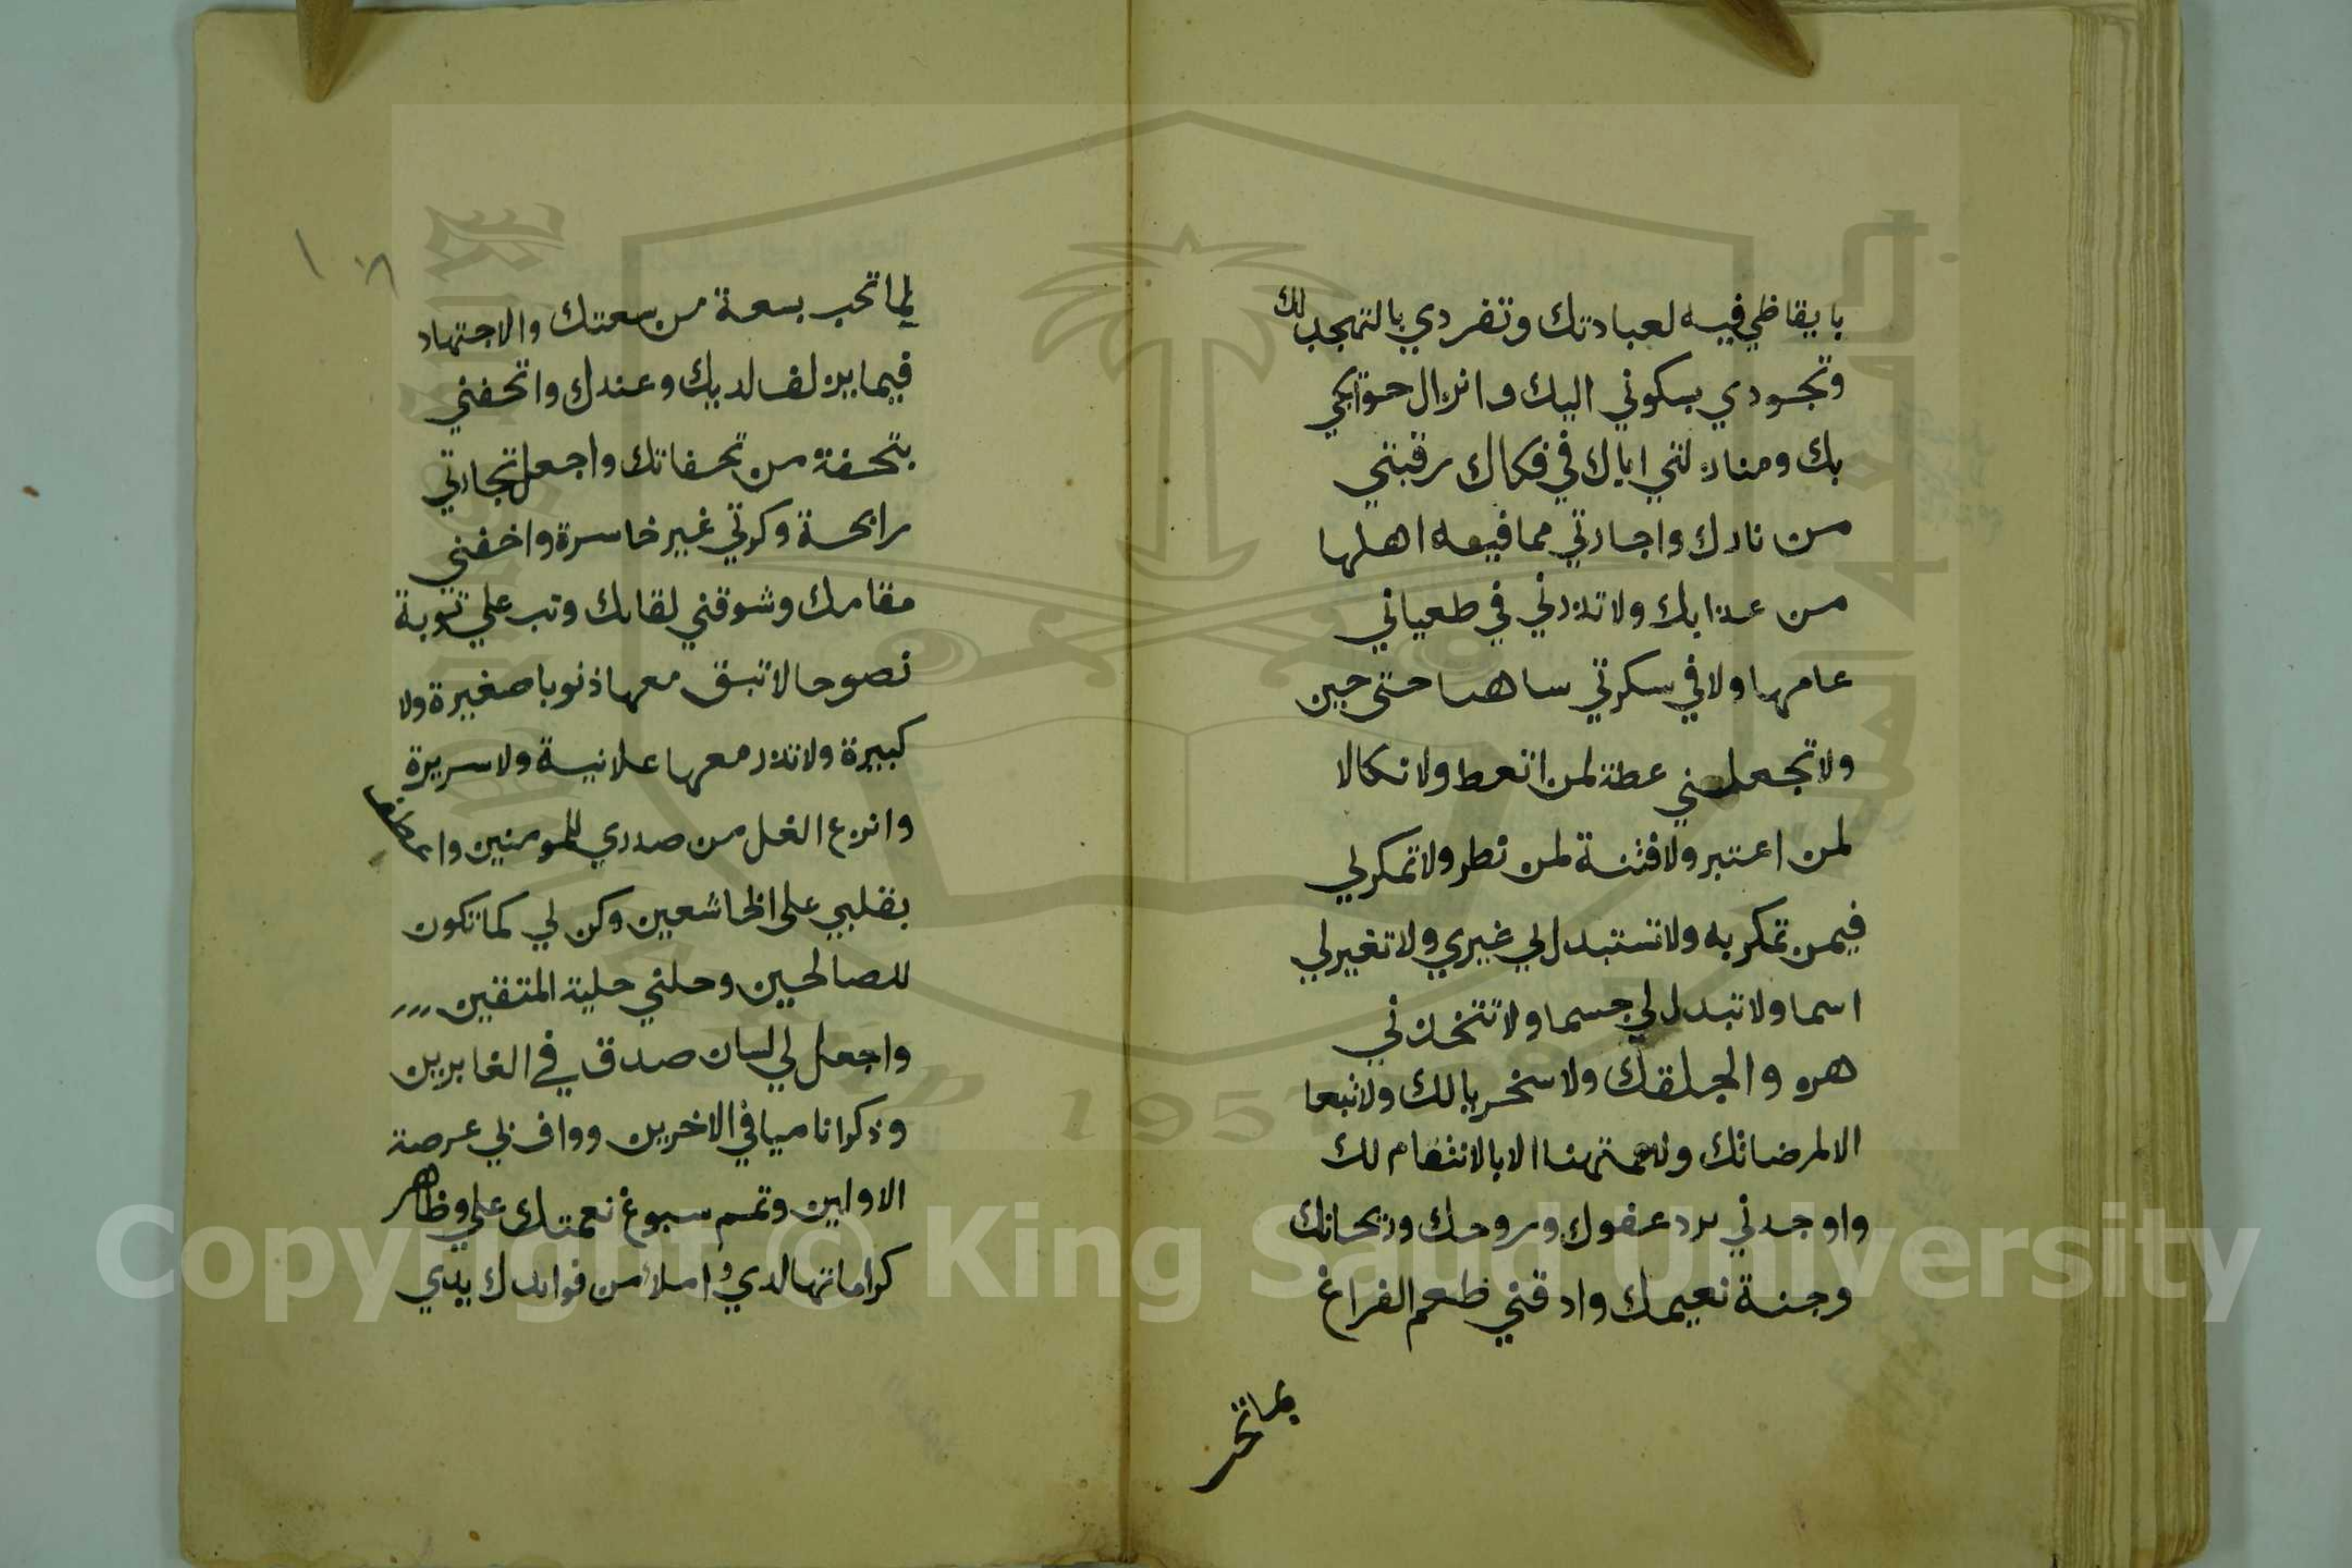 بايقاظي فيه لعبادتك وتفردي بالتهجد لك
وتجودي بسكوني اليك وانزال حوايجي
بك ومنازلتي اياك في فكاك رقبتي
من نارك واجارتي مما فيه اهلها
من عذابك ولا تذرني في طعياني
عامها ولا في سكرتي ساهيا حتى حين
ولا تجعلني عطة لمن اتعط ولا نكالا
لمن اعتبر ولا فتنة لمن نطر ولا تمكر لي
فيمن تمكر به ولا تستبدل لي غيري ولا تغير لي
اسما ولا تبدل لي جسما ولا تتخذني
هزوا لخلقك ولا سخريا لك ولا تبعا
الا لمرضاتك ولا ممتهنا الا بالانتقام لك
واوجدني برد عفوك وروحك وريحانك
وجنة نعيمك واذقني طعم الفراغ
لما تحب
لما تحب بسعة من سعتك والاجتهاد
فيما يزلف لديك وعندك واتحفني
بتحفة من تحفاتك واجعل تجارتي
رابحة وكرتي غير خاسرة واخفني
مقامك وشوقني لقاك وتب علي توبة
نصوحا لا تبق معها ذنوبا صغيرة ولا
كبيرة ولا تذر معها علانية ولا سريرة
وانزع الغل من صدري للمومنين واعطف
بقلبي على الخاشعين وكن لي كما تكون
للصالحين وحلني حلية المتقين
واجعل لي لسان صدق في الغابرين
وذكرا ناميا في الاخرين وواف لي عرصة
الاولين وتمم سبوغ نعمتك علي وظاهر
كراماتها لدي واملأ من فوايدك يدي
Copyright © King Saud University
1957